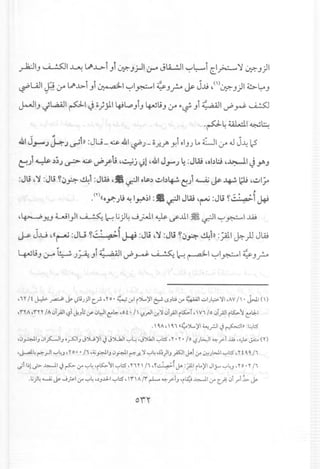 الزوجين لاستخراج أسباب الشقاق من الزوجين أو أحدهما بعد الكشف والنظر
ومباحثة الزوجين(١)، فدل على مشروعية استجواب الخصمين أو أحدهما من قِبَل القاضي
لكشف غموض القضية أو شيء من وقائعها وأوصافها المؤثرة في الحكم القضائي والعمل
بنتائجه المتعلقة بالحكم.
كما يدل له من السنة ما رواه أبو هريرة - رضي الله عنه - قال: «أتى رجل رسول الله
وهو في المسجد، فناداه، فقال: يا رسول الله، إني زنيت، فأعرض عنه حتى ردد عليه أربع
مرات، فلما شهد على نفسه أربع شهادات دعاه النبي ﷺ، فقال: أبك جنون؟ قال: لا، قال:
فهل أُحصِنْتَ؟ قال: نعم، فقال النبي ﷺ: اذهبوا به فارجموه»(٢).
فقد استجوب النبي ﷺ المدعى عليه المعترف بالزنا بما يكشف الواقعة ويوضحها،
فقال للرجل المقر: «أبك جنون؟ قال: لا، قال: فهل أُحصِنْتَ؟ قال: نعم»، فدل على
مشروعية استجواب الخصم بما يكشف غموض القضية أو يقرر شيئاً من وقائعها
(١) المحلى ٨٧/١٠، الاختيارات الفقهية من فتاوى شيخ الإسلام ابن تيمية ٢٥٠، شرح الزرقاني على مختصر خليل ٦٢/٤،
الجامع لأحكام القرآن ١٧٦/٥، أحكام القرآن لابن العربي ٥٤١/١، جامع البيان عن تأويل آي القرآن
كتابنا: «التحكيم في الشريعة الإسلامية»
(٢) متفق عليه، فقد أخرجه البخاري ٢٠٢٠/٥، كتاب الطلاق، باب الطلاق في الإغلاق والكره والسكران والمجنون،
٢٤٩٩/٦، كتاب المحاربين من أهل الكفر والردة، باب لا يرجم المجنون والمجنونة،
٢٥٠٢/٦، وباب سؤال الإمام المقر: هل أُحصِنْتَ؟، ٢٦٢١/٦، كتاب الأحكام، باب من حكم في المسجد حتى إذا أتى
على حد أمر أن يخرج من المسجد فيقام، وأخرجه مسلم ١٣١٨/٣، كتاب الحدود، باب من اعترف على نفسه بالزنا.
٥٣٢